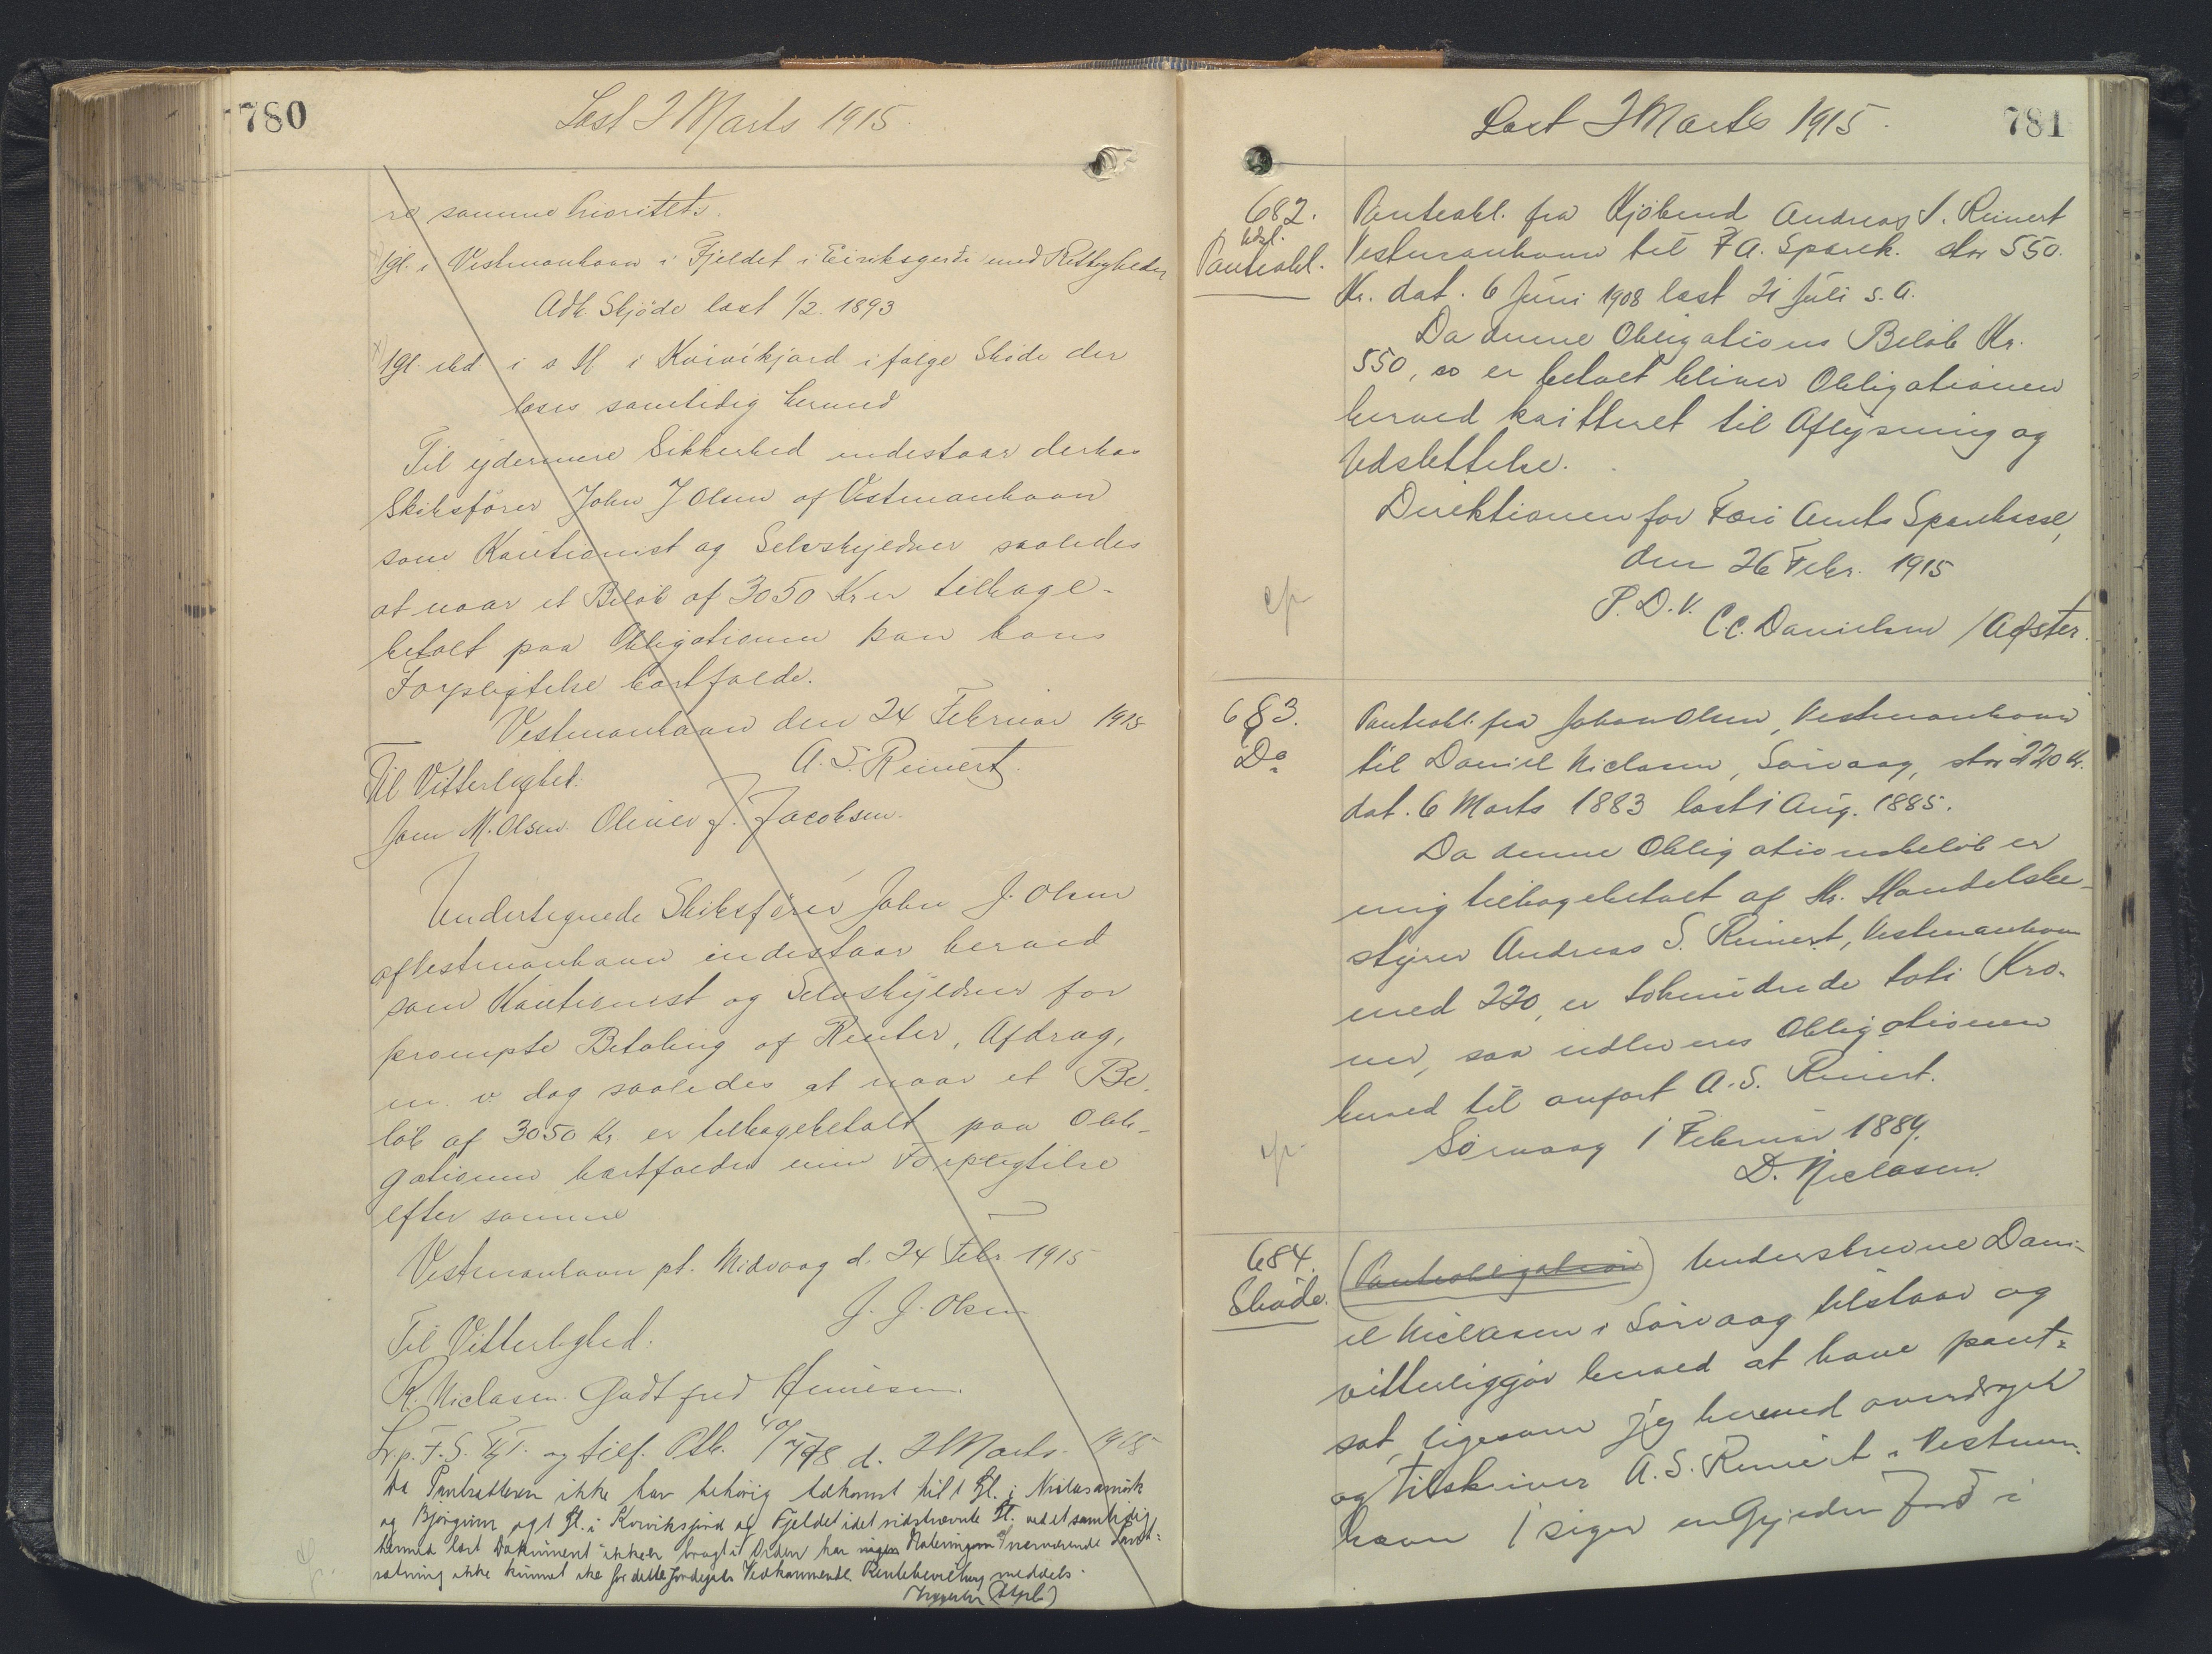 780
Læst 2 Marts 1915.
re samme Prioritet.
1gl. i Vestmanhavn i Fjeldet i Eiriksgerdi med Rettigheder
Adk. Skjøde læst 1/2. 1893
1gl. ibd i s St i Kvivikjord ifølge Skøde der
læses samtidig hermed
Til ydermere Sikkerhed indestaar derhos
Skibsfører John J Olsen af Vestmanhavn
som Kautionist og Selvskyldner saaledes
at naar et Beløb af 3050 Kr er tilbage-
betalt paa Obligationen kan hans
Forpligtelse bortfalde.
Vestmanhavn den 24 Februar 1915
A. S. Reinert.
Til Vitterlighed:
Jom M. Olsen. Oliver J. Jacobsen.
Undertegnede Skibsfører John J. Olsen
af Vestmanhavn indestaar herved
som Kautionist og Selvskyldner for
prompte Betaling af Renter, Afdrag,
m. v. dog saaledes at naar et Be-
løb af 3050 Kr er tilbagebetalt paa Obli-
gationen bortfalder min Forpligtelse
efter samme
Vestmanhavn pt. Midvaag d. 24 Febr 1915
J. J. Olsen
Til Vitterlighed:
R. Niclasen. Godtfred Heinesen.
og tilf. d. 2 Marts 1915
Da Pantsætteren ikke har behørig Adkomst til 1 Gl. i
og 1 Gl. i Kviviksjord og Fjeldet idet sidstnævnte Gl. ved et samtidig
hermed læst Dokument ikke er bragt i Orden har nærværende Pant-
sætning ikke kunnet ske for dette Jordegods Vedkommende. meddels.
781
Læst 2 Marts 1915.
682.
Udsl.
Panteobl.
Panteobl. fra Kjøbmd Andreas S. Reinert
Vestmanhavn til F A. Spark. stor 550.
Kr. dat. 6 Juni 1908 læst 21 Juli s. A.
Da denne Obligations Beløb Kr.
550, 00 er betalt bliver Obligationen
herved kvitteret til Aflysning og
Udslettelse.
Direktionen for Færø Amts Sparekasse,
den 26 Febr. 1915
P. D. V.
C. C. Danielsen /
683.
Do
Panteobl. fra Johan Olsen, Vestmanhavn
til Daniel Niclasen, Sørvaag, stor 220 Kr.
dat. 6 Marts 1883 læst 1 Aug. 1885.
Da denne Obligationsbeløb er
mig tilbagebetalt af Hr. Handelsbe-
styrer Andreas S. Reinert, Vestmanhavn
med 220, er tohundrede toti Kro-
ner, saa udleveres Obligationen
herved til anført A. S. Reinert.
Sørvaag 1 Februar 1889.
D. Niclasen.
684.
Skøde.
(Panteobligation) Underskrevne Dani-
el Niclasen i Sørvaag tilstaar og
vitterliggjør herved at have pant-
sat, ligesom jeg herved overdrager
og tilskriver A. S. Reinert i Vestman-
havn 1 siger en Gylden Jord i